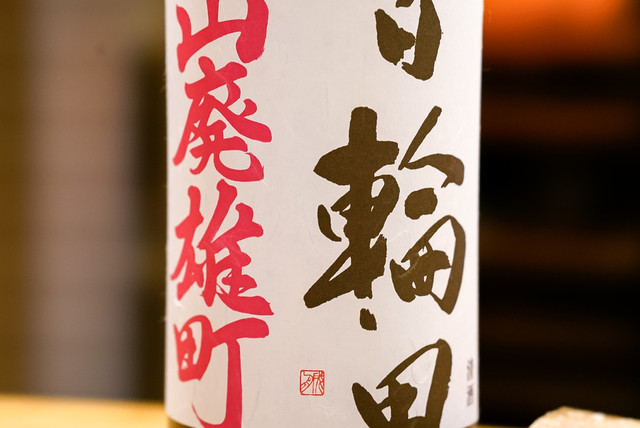 日輪田
山廃雄町